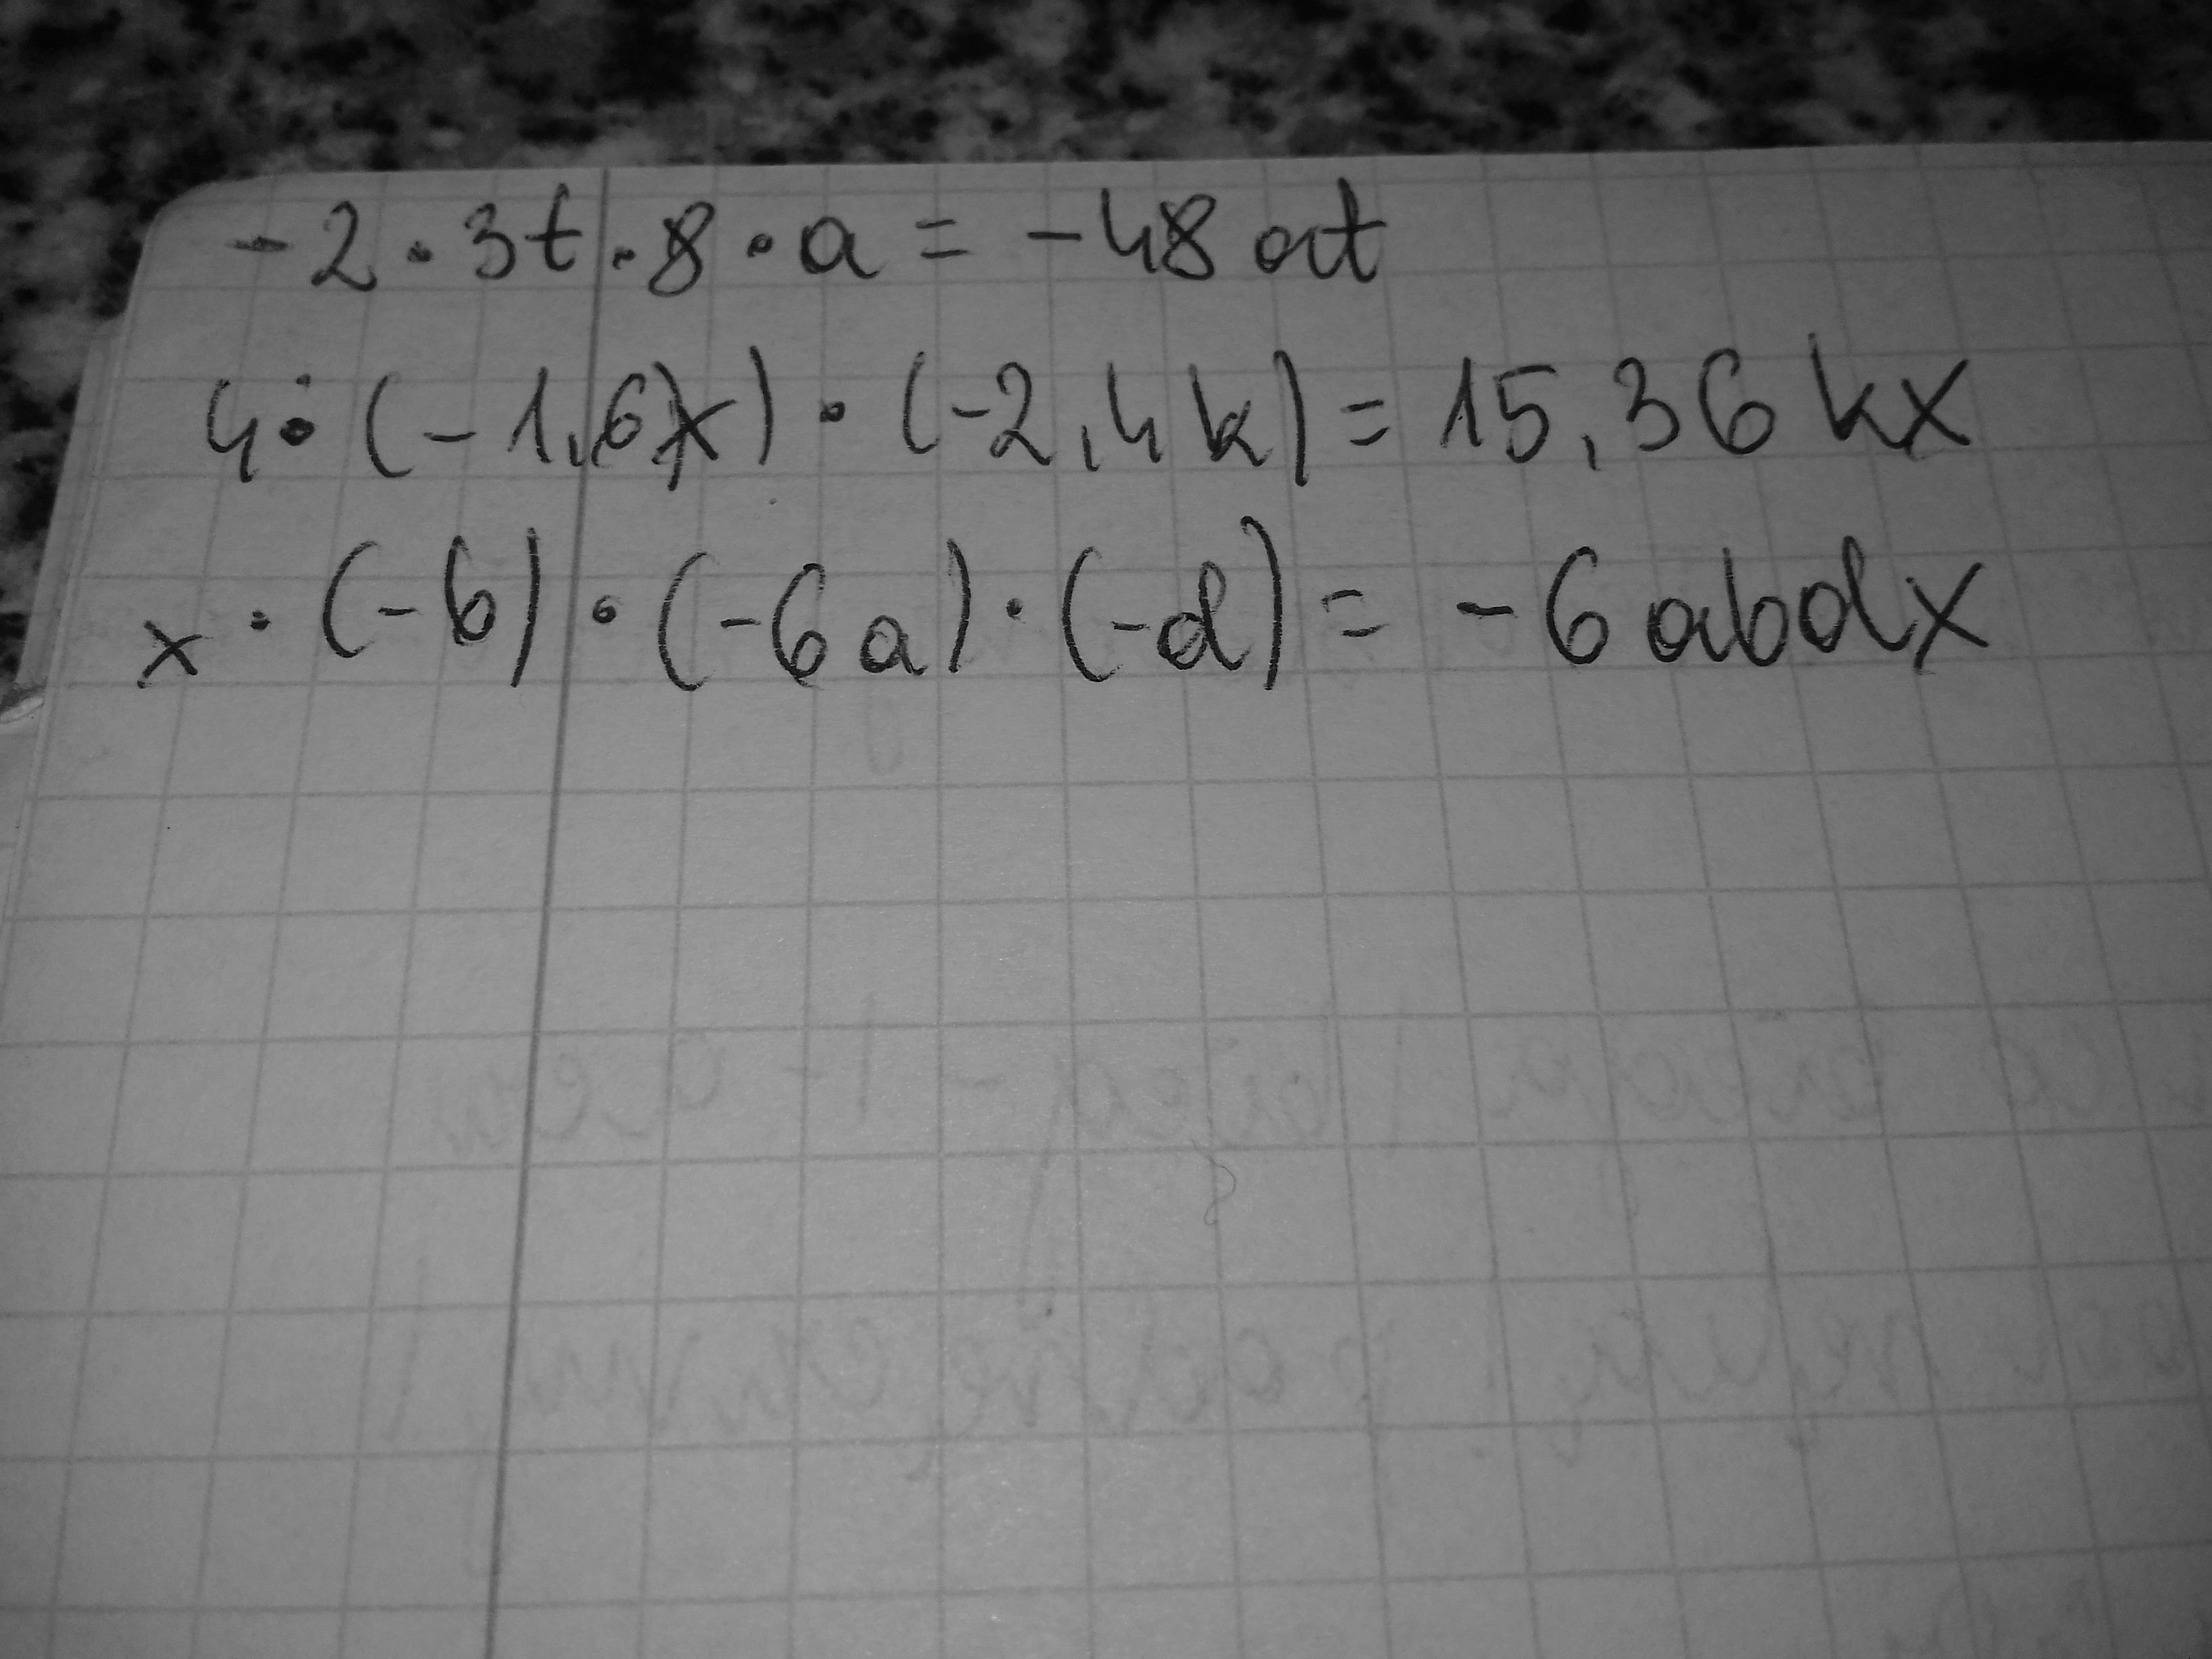 -2·3t·8·a = -48at
4·(-1,6x)·(-2,4k) = 15,36kx
x·(-b)·(-6a)·(-d) = -6abdx